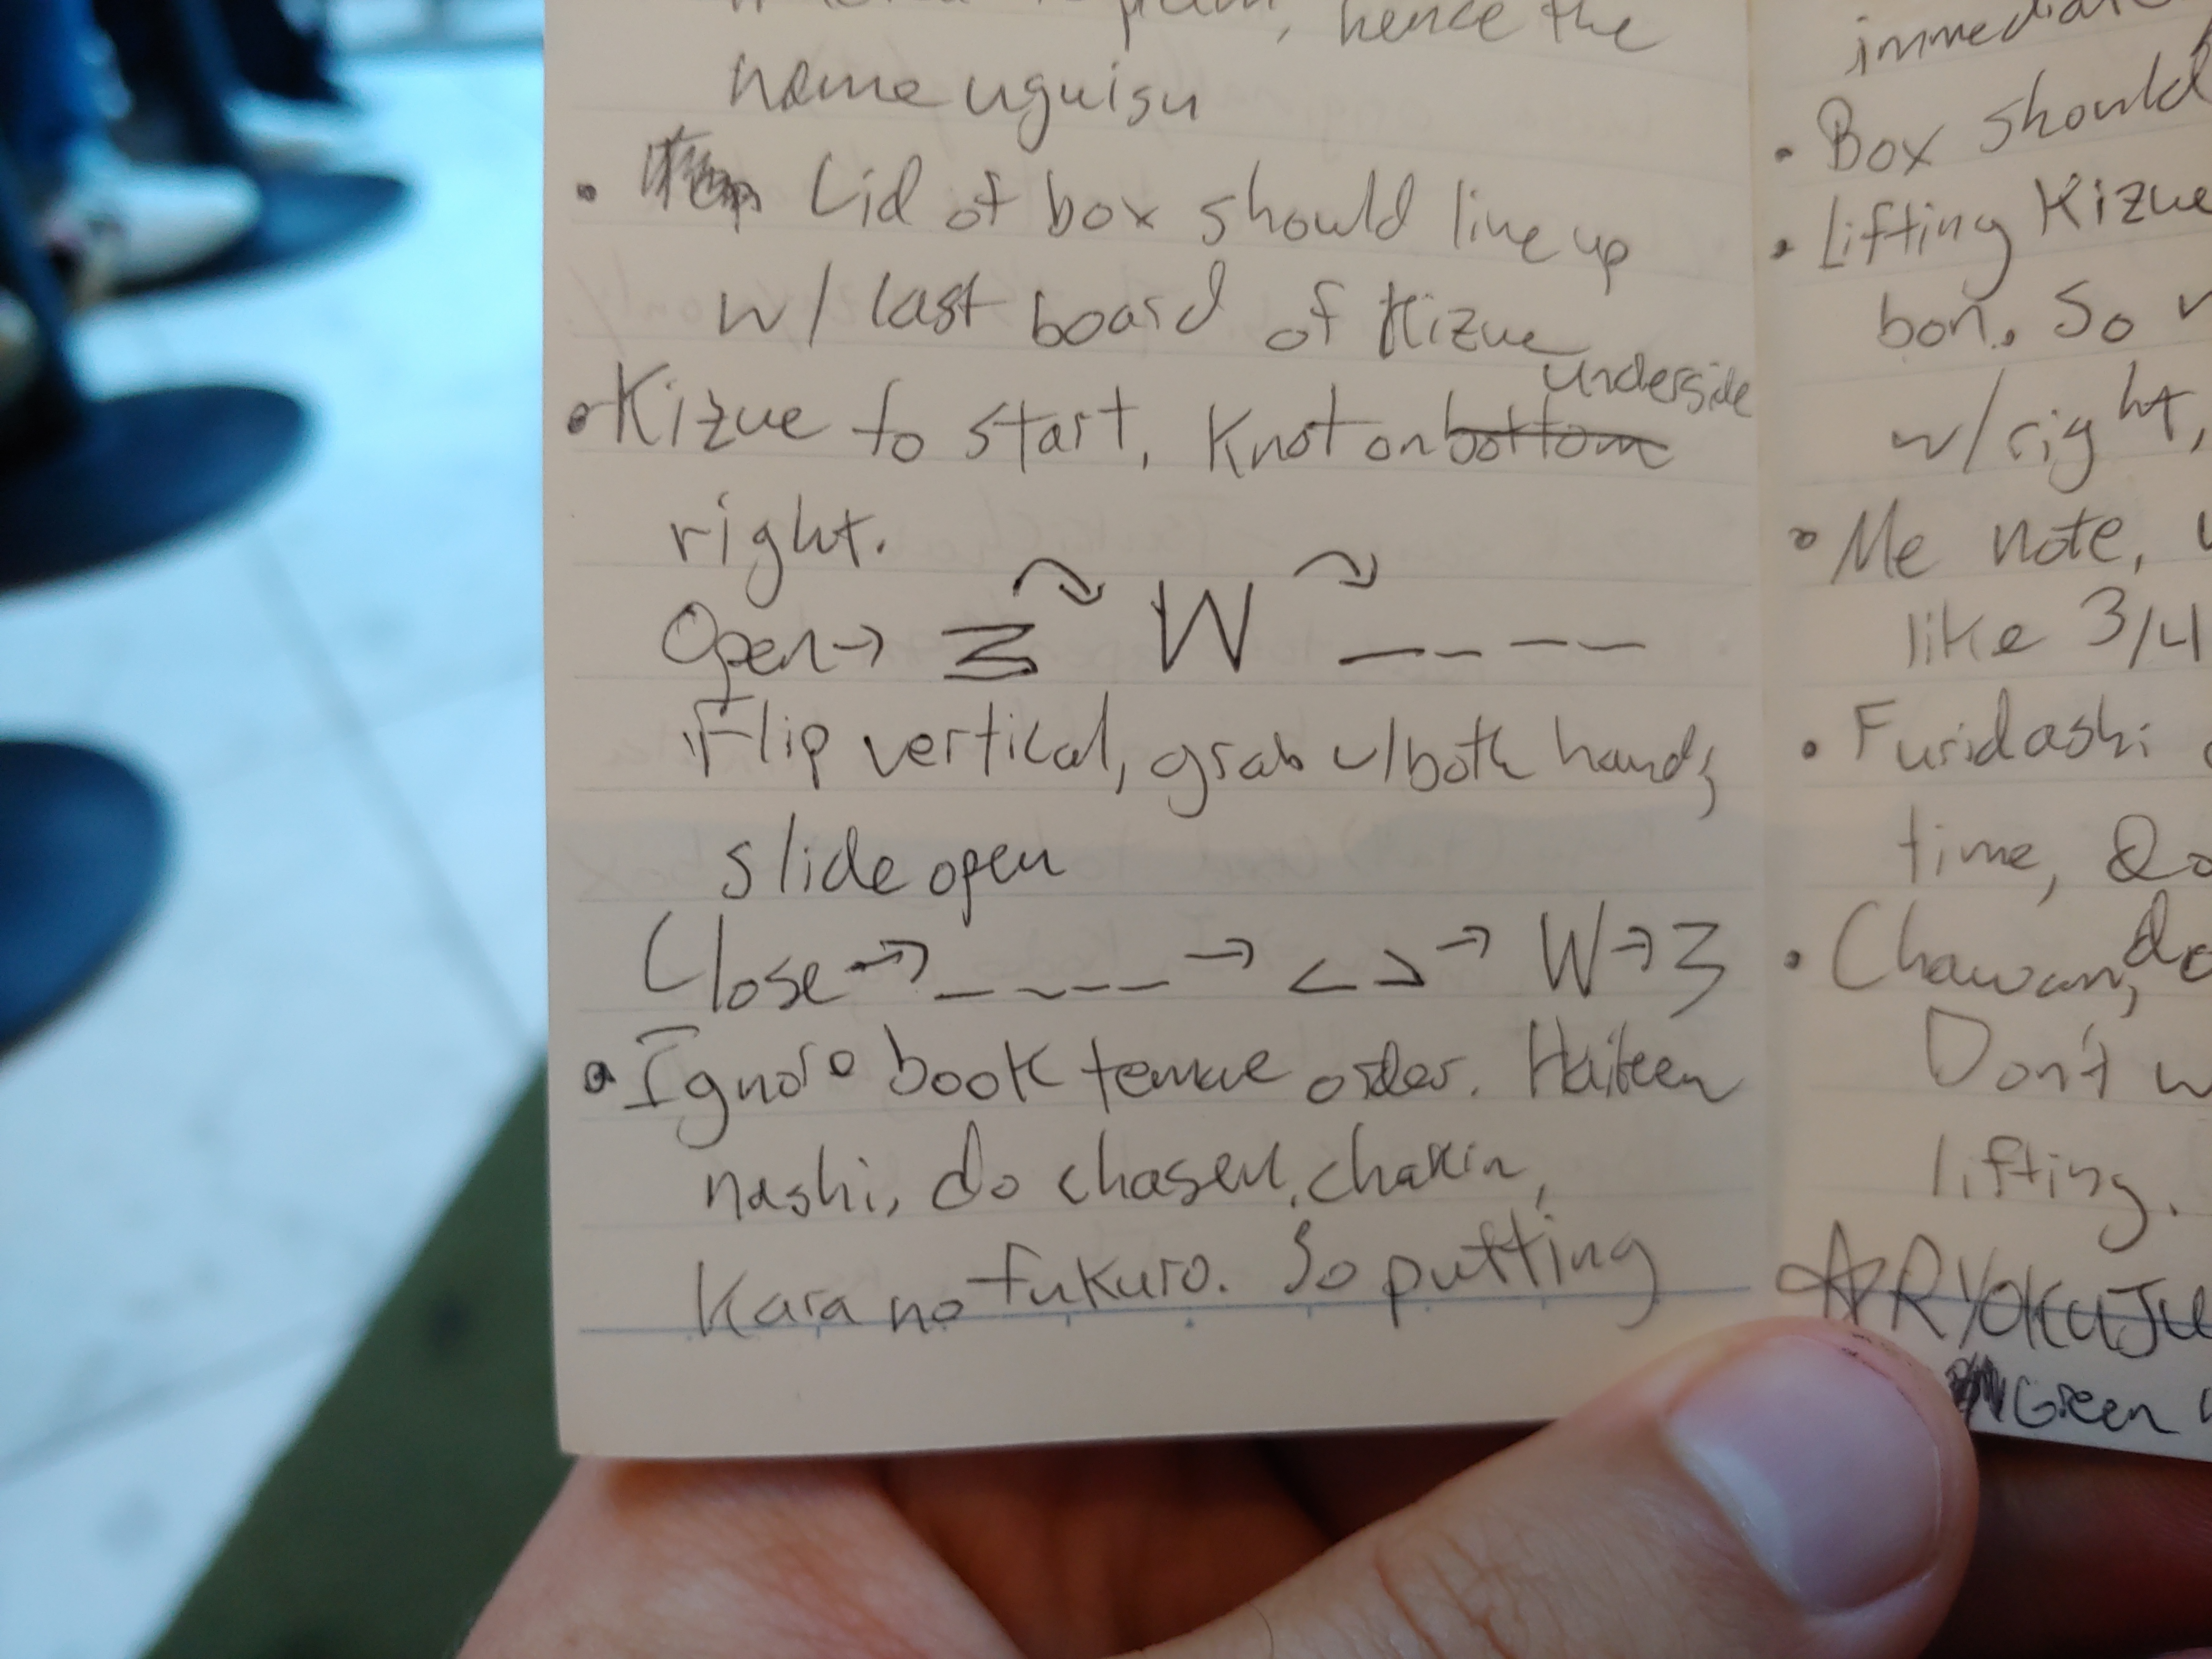 hence the
name uguisu
• Lid of box should line up
w/ last board of Kizue
underside
• Kizue to start, Knot on bottom
right.
Open → Σ W _ _ _ _
Flip vertical, grab w/both hands,
slide open
Close → _ _ _ _ → < > → W → 3
• Ignore book temae order. Haiken
nashi, do chasen, chakin,
Kara no fukuro. So putting
• Box should
• Lifting Kizue
bon. So
w/right,
• Me note,
like 3/4
• Furidashi
time,
• Chawan,
Don't
lifting.
☆ RYOKUJU
Green